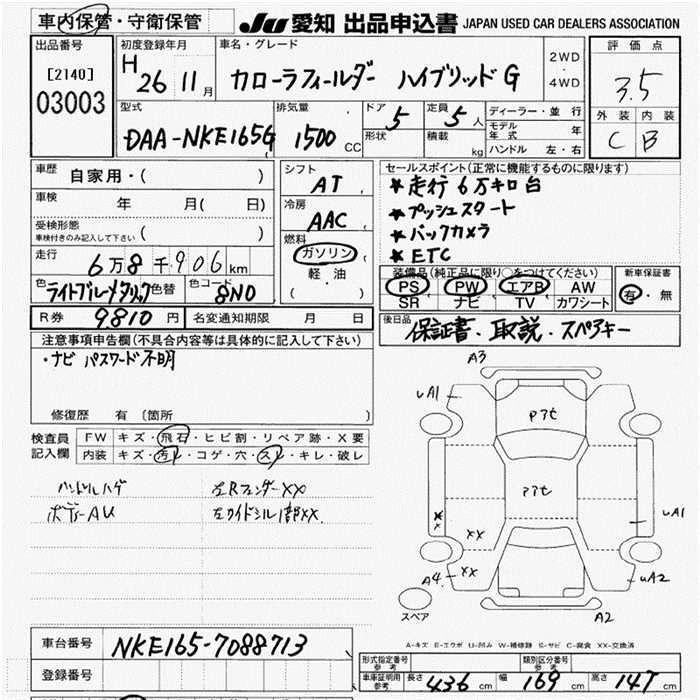 車内保管・守衛保管 JU 愛知 出品申込書 JAPAN USED CAR DEALERS ASSOCIATION
出品番号 初度登録年月 車名・グレード 評価点
[2140] H 26 11月 カローラフィールダー ハイブリッドG 2WD・4WD 3.5
03003
型式 排気量 ドア 5 定員 5人 ディーラー・並行 外装 内装
DAA-NKE165G 1500 CC 形状 積載 kg モデル年式 年 C B
ハンドル 左・右
車歴 自家用・( ) シフト AT セールスポイント(正常に機能するものに限ります)
車検 年 月( 日) 冷房 AAC ★走行6万キロ台
受検形態 ( ) ★プッシュスタート
車検付きのみ記入して下さい 燃料 ★バックカメラ
走行 6万8千906km ガソリン ★ETC
軽・油
( )
色 ライトブルーメタリック 色替 色コード 8N0
装備品(純正品に限り○をつけてください) 新車保証書
PS PW エアB AW 有・無
SR ナビ TV カワシート
R券 9810円 名変通知期限 月 日 後日品 保証書、取説、スペアキー
注意事項申告欄(不具合内容等は具体的に記入して下さい)
・ナビ パスワード不明
修復歴 有(箇所 )
検査員記入欄 FW キズ・飛石・ヒビ割・リペア跡・X要
内装 キズ・汚レ・コゲ・穴・スレ・キレ・破レ
ハンドルハゲ 左Rフェンダー XX
ボディーAU
A3
UA1
P7t
P7t
XX UA1
A4 XX UA2
スペア A2
A-キズ E-エクボ U-凹み W-補修跡 S-サビ C-腐食 XX-交換済
車台番号 NKE165-7088713
登録番号
形式指定番号 参考 類別区分番号 参考
車庫証明用 参考 長さ 436 cm 幅 169 cm 高さ 147 cm